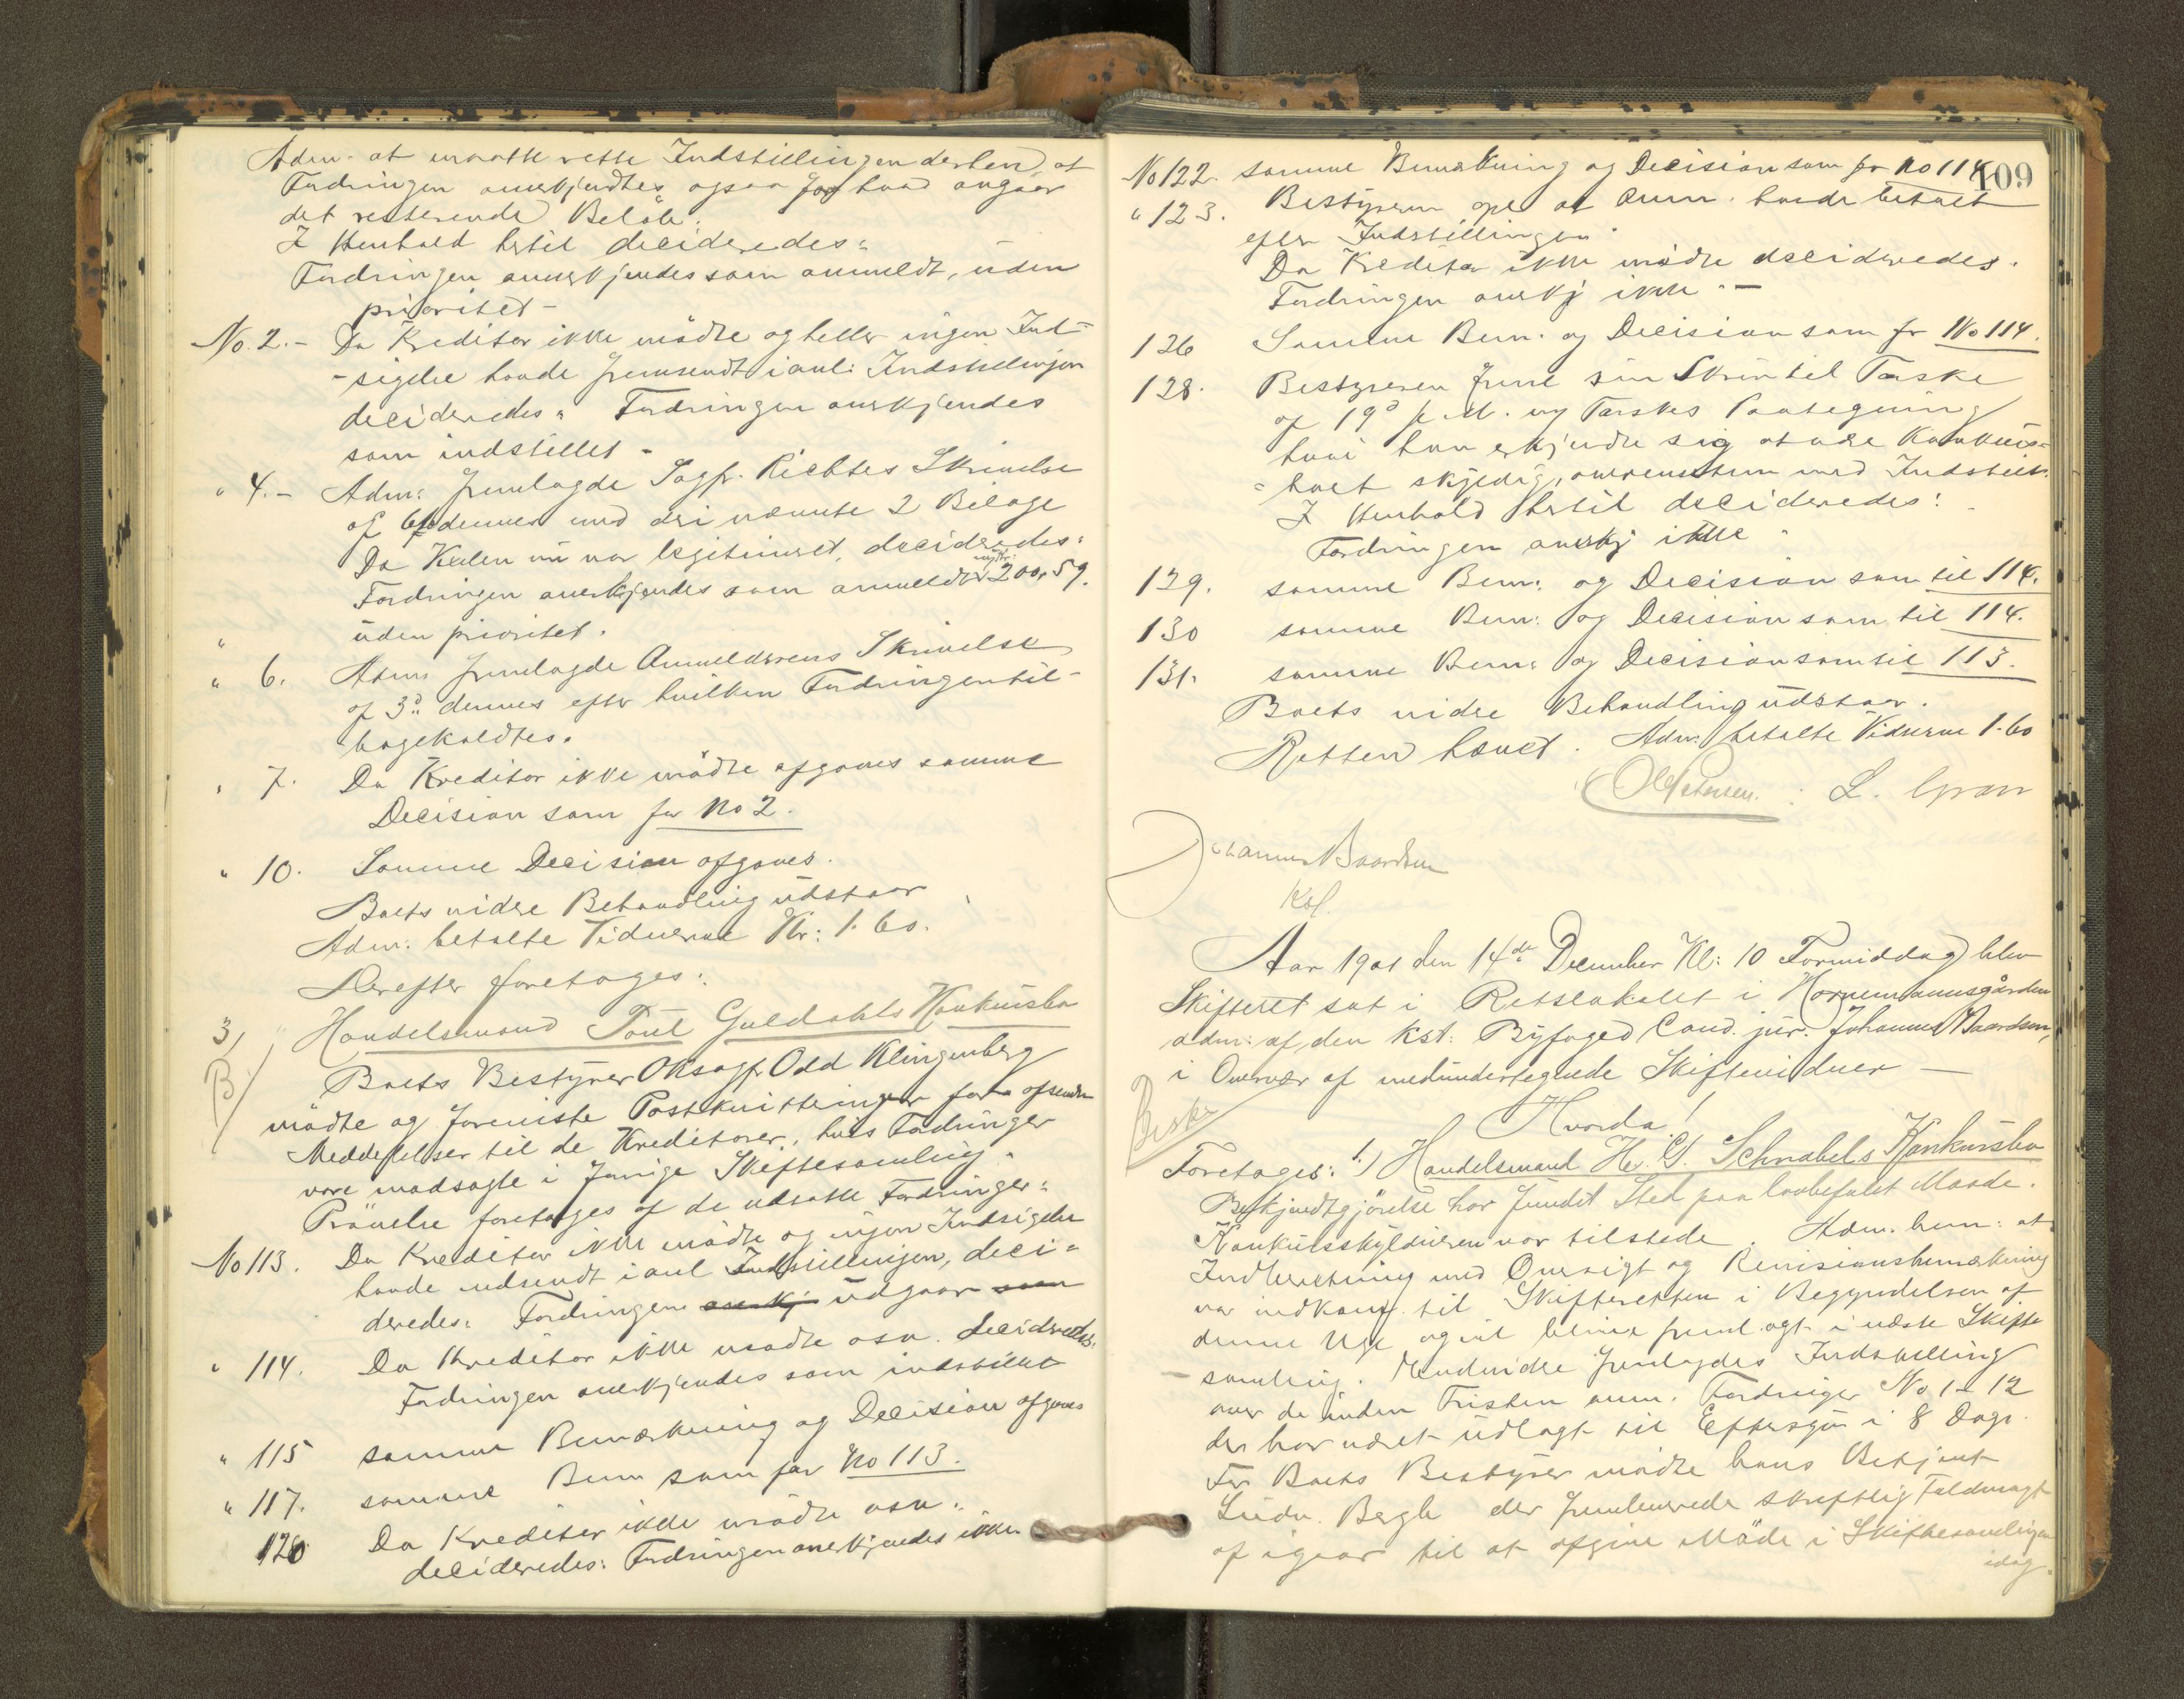 Adm. at maatte rette Indstillingen derhen, at
Fordringen anerkjendtes ogsaa for hvad angaar
det resterende Beløb.
I Henhold hertil decideredes:
Fordringen anerkjendes som anmeldt, uden
prioritet -
No. 2. - Da Kreditor ikke mødte og heller ingen Ind-
-sigelse havde fremsendt i anl: Indstillingen
decideredes: Fordringen anerkjendes
som indstillet -
" 4. - Adm: fremlagde Sagf. Richters Skrivelse
af 6te dennes med deri nævnte 2 Bilage
Da Kreditor nu var legitimeret, decideredes:
Fordringen anerkjendes som anmeldt 200,59.
uden prioritet.
" 6. Adm: fremlagde Anmelderens Skrivelse
af 3d: dennes efter hvilken Fordringen til-
bagekaldtes.
" 7. Da Kreditor ikke mødte afgaves samme
Decision som for No 2.
" 10. Samme Decision afgaves.
Boets videre Behandling udstaar
Adm: betalte Vidnerne Kr: 1.60.
Derefter foretoges:
3, Handelsmand Poul Guldahls Konkursbo
B/
Boets Bestyrer Oksagf. Odd Klingenberg
mødte og foreviste Postkvitteringer for afsendte
Meddelelser til de Kreditorer, hvis Fordringer
vare modsagte i forrige Skiftesamling.
Prøvelse foretoges af de udsatte Fordringer:
No 113. Da Kreditor ikke mødte og ingen Indsigelse
havde indsendt i anl Indstillingen, deci-
deredes: Fordringen anerkj udgaar som
" 114. Da Kreditor ikke mødte osv. decideredes:
Fordringen anerkjendes som indstillet
" 115 samme Bemærkning og Decision afgaves
" 117. samme Bem som for No 113.
120 Da Kreditor ikke mødte osv.
decideredes: Fordringen anerkjendes ikke
109
No 122. samme Bemærkning og Decision som for No 114
" 123. Bestyreren opl at Anm. havde betalt
efter Indstillingen.
Da Kreditor ikke mødte decideredes.
Fordringen anerkj ikke. -
126 Samme Bem: og Decision som for No 114.
128. Bestyreren freml sin Skriv til Taske
af 19d f. M. og Taskes Paategning
hvori han erkjendte sig at være Konkurs-
-boet skyldig, overensstem med Indstill.
I Henhold hertil decideredes:
Fordringen anerkj ikke.
129. samme Bem: og Decision som til 114.
130 samme Bem: og Decision som til 114.
131. samme Bem: og Decision som til 113.
Boets videre Behandling udstaar.
Retten hævet. Adm: betalte Vidnerne 1.60
Petersen. L. Gran
Johannes Baardsen
Kst.
Aar 1901 den 14de December Kl: 10 Formiddag blev
Skifteret sat i Retslokalet i Hornemannsgården
adm: af den kst: Byfoged Cand. jur. Johannes Baardsen,
i Overvær af medundertegnede Skiftevidner -
Hvorda!
Foretoges: 1.) Handelsmand H. G. Schnabels Konkursbo
Bekjendtgjørelse har fundet Sted paa lovbefalet Maade.
Konkursskyldneren var tilstede. Adm. bem: at
Indberetning med Oversigt og Revisionsbemærkning
var indkomt. til Skifteretten i Begyndelsen af
denne Uge og vil blive fremlagt i næste Skifte
-samling. Endvidre fremlagdes Indstilling
over de inden Fristen anm. Fordringer No 1 - 12
der har været udlagt til Eftersyn i 8 Dage.
For Boets Bestyrer mødte hans Betjent
Ludv. Bergh der fremleverede skriftlig Fuldmagt
af igaar til at afgive Møde i Skiftesamlingen
idag.